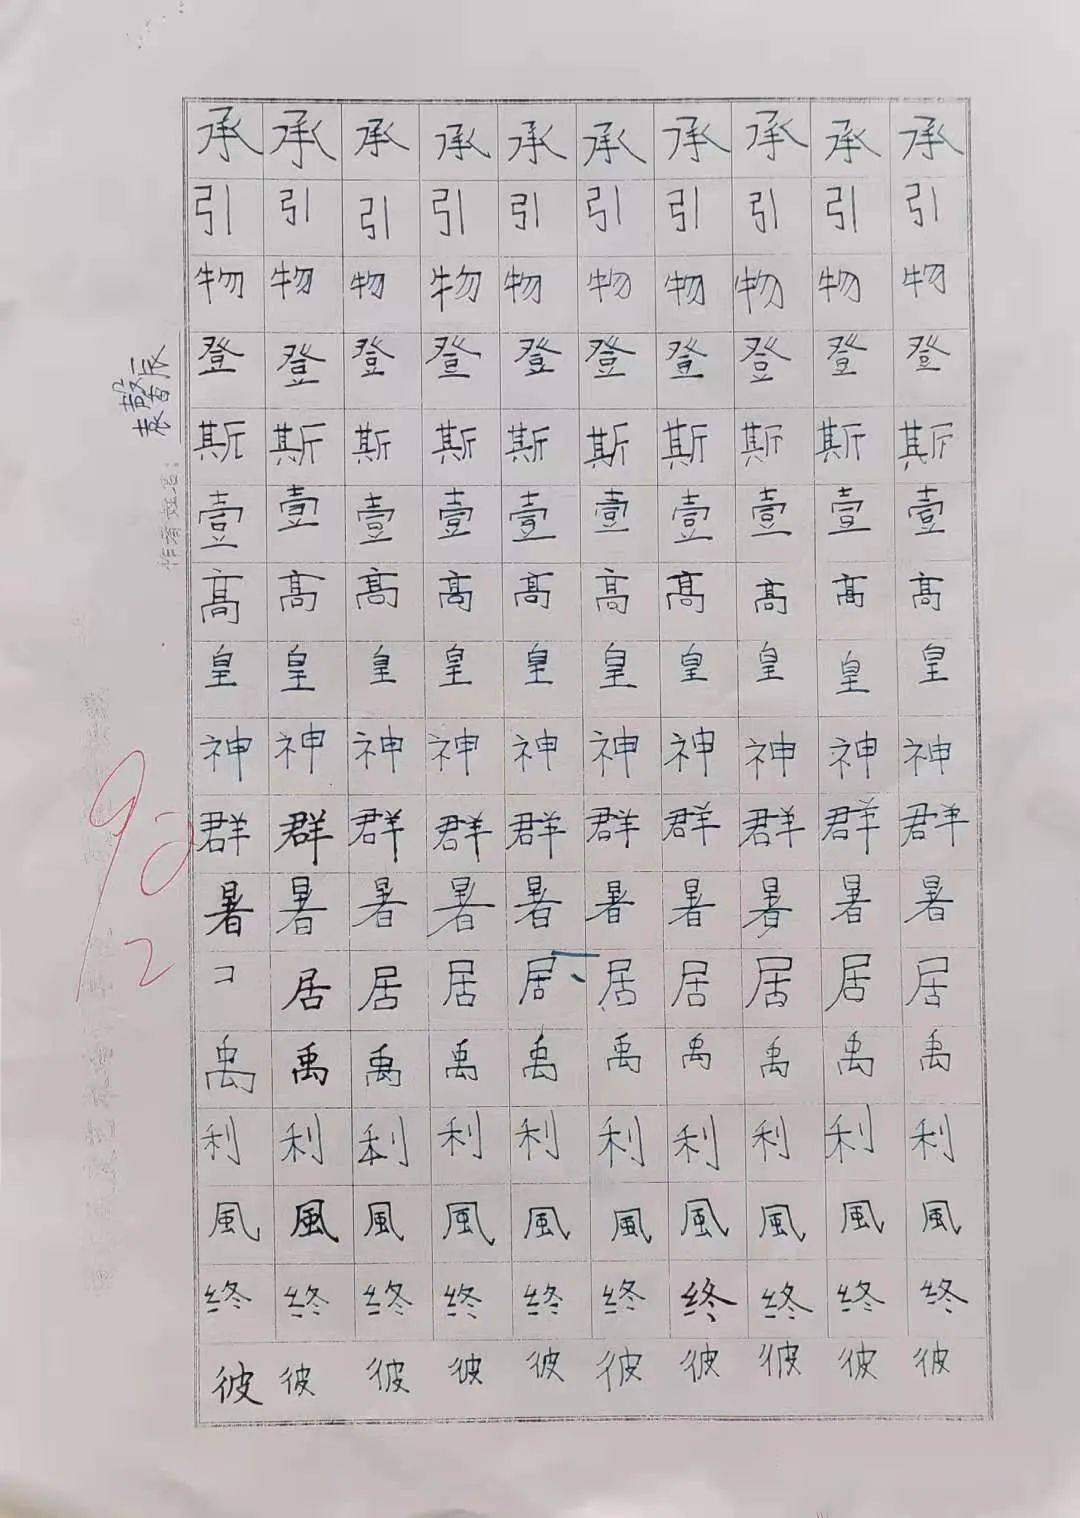 承承承承承承承承承承
引引引引引引引引引引
物物物物物物物物物物
登登登登登登登登登登
斯斯斯斯斯斯斯斯斯斯
壹壹壹壹壹壹壹壹壹壹
髙髙髙髙髙髙髙髙髙髙
皇皇皇皇皇皇皇皇皇皇
神神神神神神神神神神
群群群群群群群群群群
暑暑暑暑暑暑暑暑暑暑
コ居居居居居居居居居
禹禹禹禹禹禹禹禹禹禹
利利利利利利利利利利
風風風風風風風風風風
终终终终终终终终终终
彼彼彼彼彼彼彼彼彼彼
作者姓名：袁馨辰
92
2